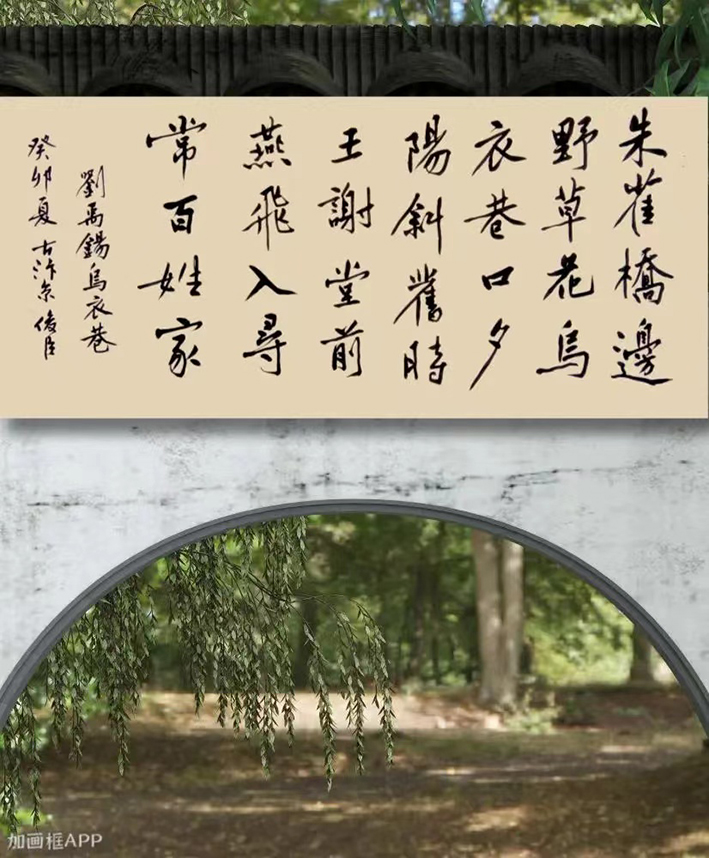 朱雀橋邊
野草花烏
衣巷口夕
陽斜舊時
王謝堂前
燕飛入尋
常百姓家
劉禹錫烏衣巷
癸卯夏古汴京俊臣
加画框APP